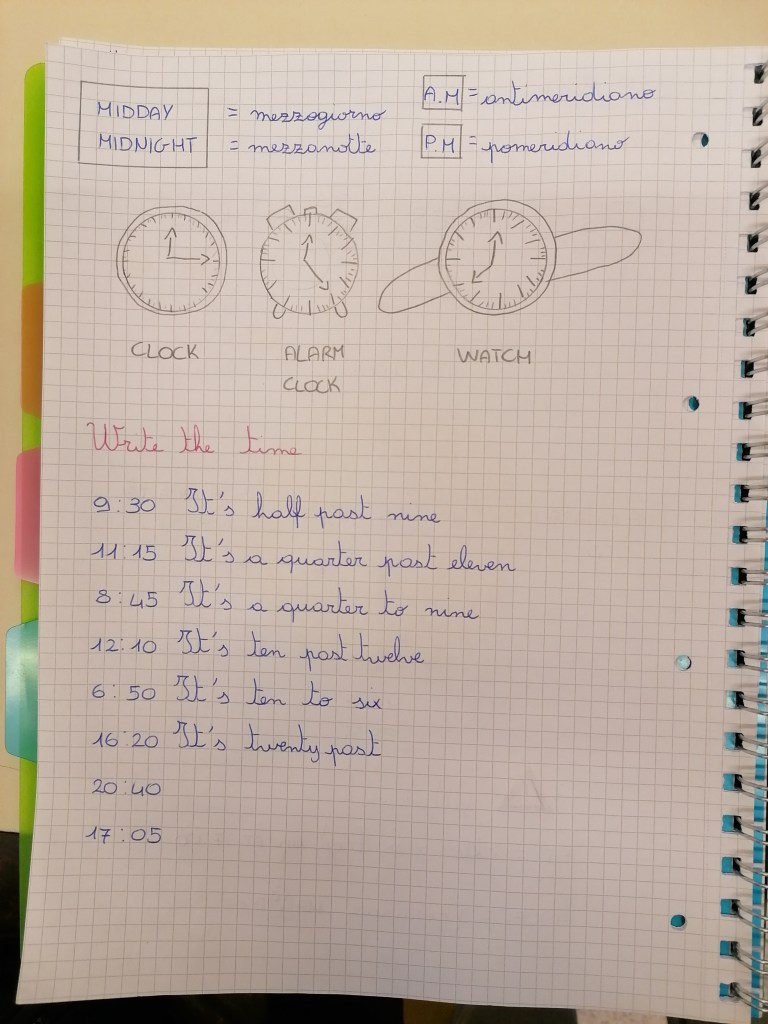 MIDDAY = mezzogiorno
MIDNIGHT = mezzanotte
A.M = antimeridiano
P.M = pomeridiano
CLOCK
ALARM
CLOCK
WATCH
Write the time
9:30 It's half past nine
11:15 It's a quarter past eleven
8:45 It's a quarter to nine
12:10 It's ten past twelve
6:50 It's ten to six
16:20 It's twenty past
20:40
17:05